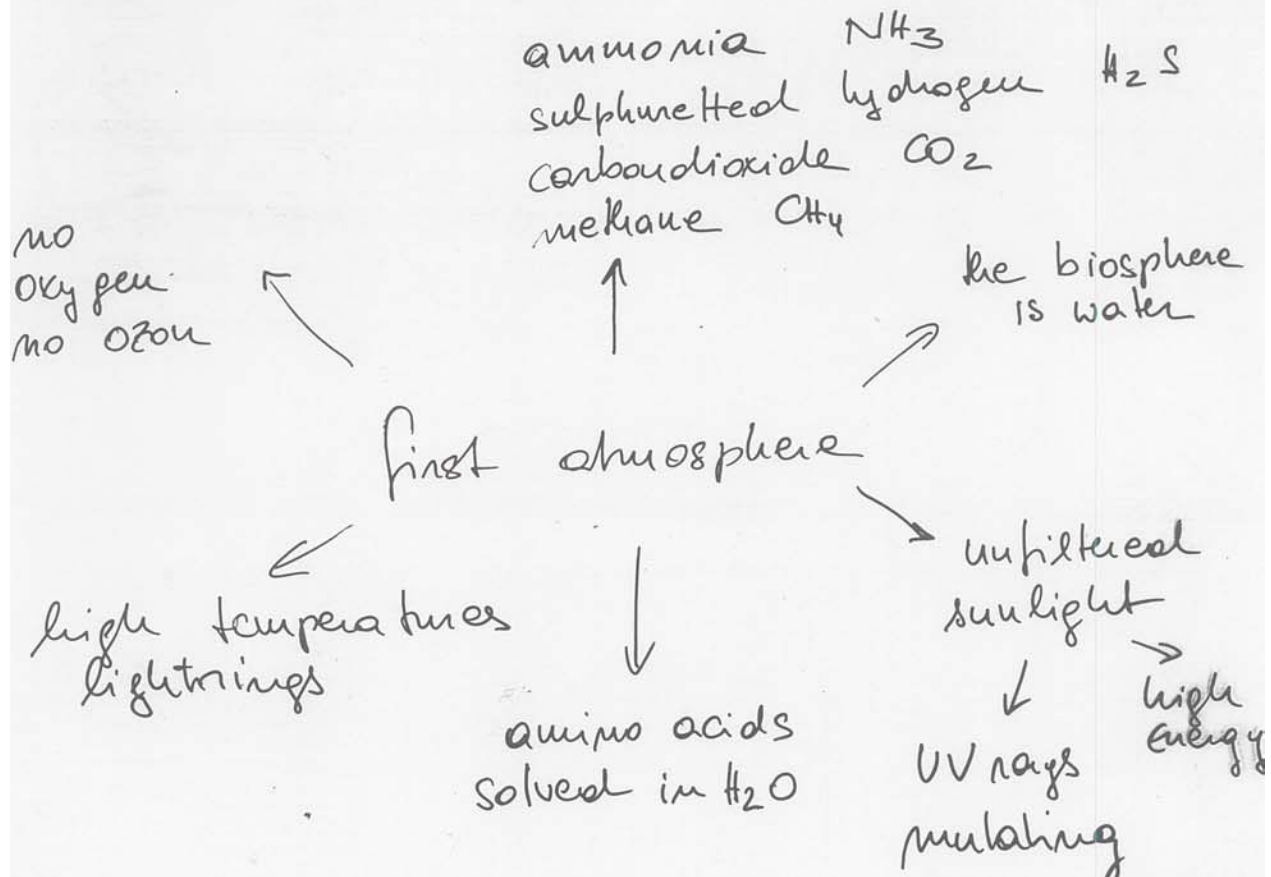 ammonia NH3
sulphuretted hydrogen H2S
carbondioxide CO2
methane CH4
no
oxygen
no ozon
the biosphere
is water
first atmosphere
high temperatures
lightnings
amino acids
solved in H2O
unfiltered
sunlight
high
energy
UV rays
mutating